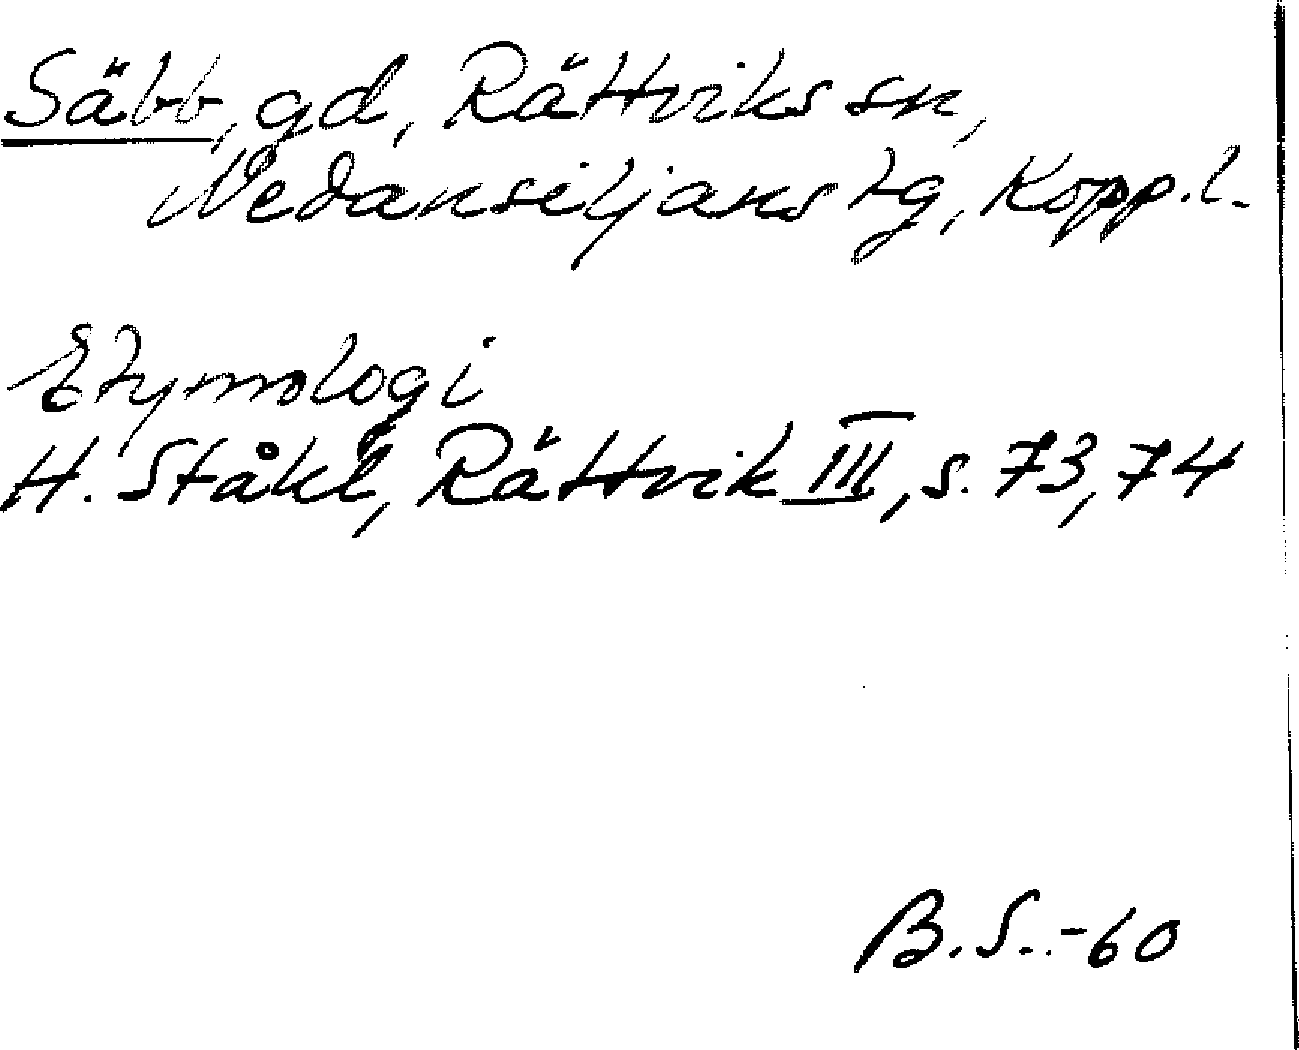 Säbb, gd, Rättviks sn,
Nedansiljans tg, Kopp. l.
Etymologi
H. Ståhl, Rättvik III, s. 73, 74
B.S. -60